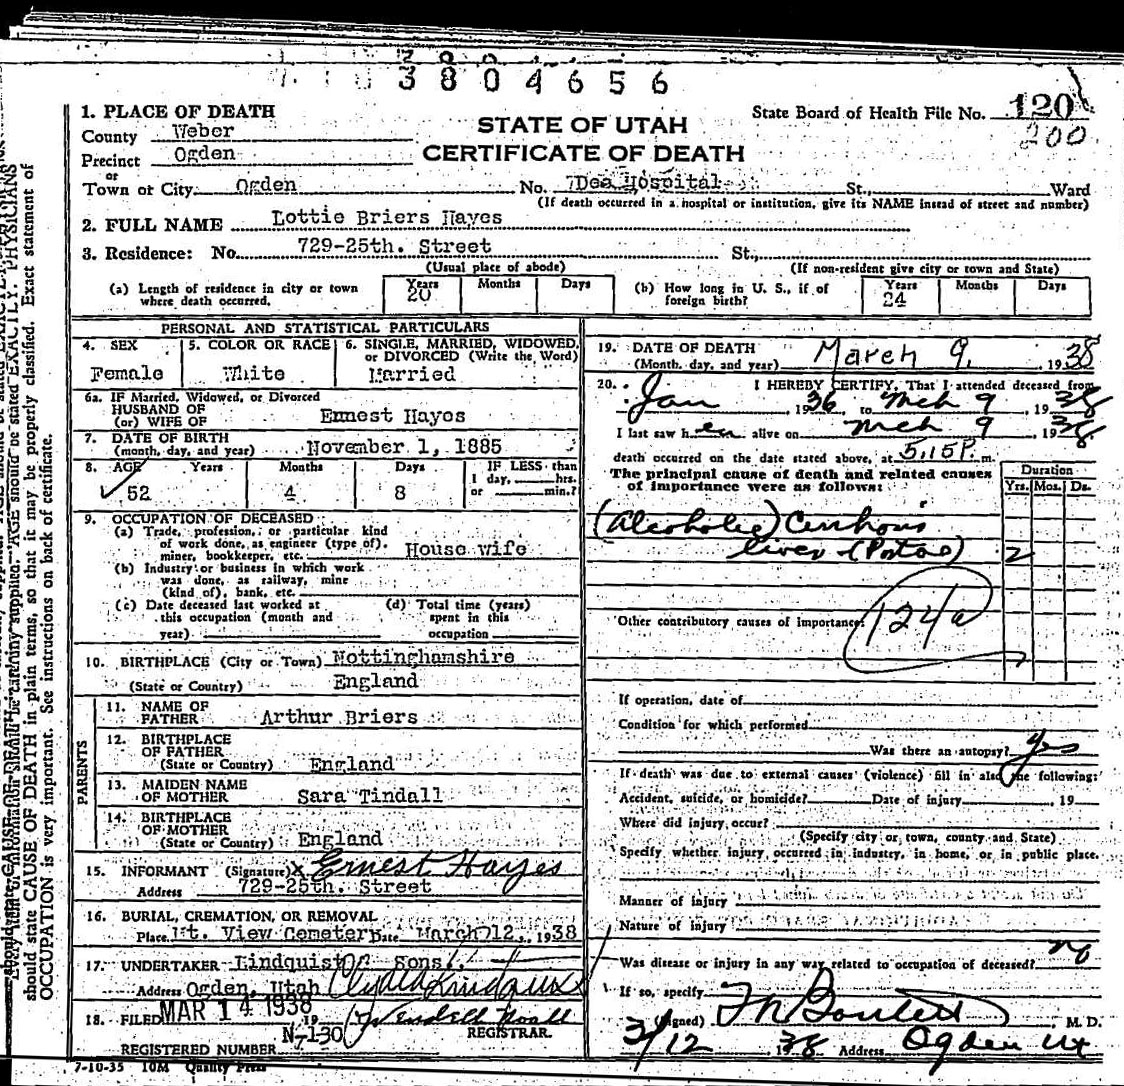 3804656
1. PLACE OF DEATH
County Weber
Precinct Ogden
or
Town or City Ogden No. Dee Hospital St., Ward
(If death occurred in a hospital or institution, give its NAME instead of street and number)
STATE OF UTAH
CERTIFICATE OF DEATH
State Board of Health File No. 120
200
2. FULL NAME Lottie Briers Hayes
3. Residence: No. 729-25th. Street St.,
(Usual place of abode) (If non-resident give city or town and State)
(a) Length of residence in city or town where death occurred. Years 20 Months Days
(b) How long in U. S., if of foreign birth? Years 24 Months Days
PERSONAL AND STATISTICAL PARTICULARS
4. SEX Female
5. COLOR OR RACE White
6. SINGLE, MARRIED, WIDOWED, or DIVORCED (Write the Word) Married
6a. IF Married, Widowed, or Divorced
HUSBAND OF
(or) WIFE OF Ernest Hayes
7. DATE OF BIRTH
(month, day, and year) November 1, 1885
8. AGE Years 52 Months 4 Days 8 IF LESS than 1 day, hrs. or min.?
9. OCCUPATION OF DECEASED
(a) Trade, profession, or particular kind
of work done, as engineer (type of),
miner, bookkeeper, etc. House wife
(b) Industry or business in which work
was done, as railway, mine
(kind of), bank, etc.
(c) Date deceased last worked at this occupation (month and year)
(d) Total time (years) spent in this occupation
10. BIRTHPLACE (City or Town) Nottinghamshire
(State or Country) England
PARENTS
11. NAME OF FATHER Arthur Briers
12. BIRTHPLACE OF FATHER
(State or Country) England
13. MAIDEN NAME OF MOTHER Sara Tindall
14. BIRTHPLACE OF MOTHER
(State or Country) England
15. INFORMANT (Signature) x Ernest Hayes
Address 729-25th. Street
16. BURIAL, CREMATION, OR REMOVAL
Place Mt. View Cemetery Date March 12, 1938
17. UNDERTAKER Lindquist & Sons
Address Ogden, Utah
18. FILED MAR 14 1938 19
REGISTRAR.
N-130
REGISTERED NUMBER
7-10-35 10M Quality Press
19. DATE OF DEATH
(Month, day, and year) March 9, 1938
20. I HEREBY CERTIFY, That I attended deceased from
Jan 1936, to Mch 9, 1938
I last saw her alive on Mch 9, 1938
death occurred on the date stated above, at 5,15 P. m.
The principal cause of death and related causes
of importance were as follows:
Duration
Yrs. Mos. Ds.
(Alcoholic) Cirrhosis
liver (Portal) 2
Other contributory causes of importance:
124a
If operation, date of
Condition for which performed
Was there an autopsy? yes
If death was due to external causes (violence) fill in also the following:
Accident, suicide, or homicide? Date of injury , 19
Where did injury occur?
(Specify city or town, county and State)
Specify whether injury occurred in industry, in home, or in public place.
Manner of injury
Nature of injury
Was disease or injury in any way related to occupation of deceased? no
If so, specify
(Signed) M. D.
3/12, 1938 Address Ogden Ut
should state CAUSE OF DEATH in plain terms, so that it may be properly classified. Exact statement of
OCCUPATION is very important. See instructions on back of certificate.